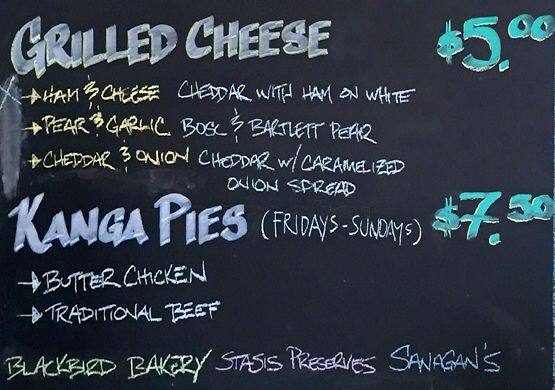 GRILLED CHEESE $5.00
HAM & CHEESE CHEDDAR WITH HAM ON WHITE
PEAR & GARLIC BOSC & BARTLETT PEAR
CHEDDAR & ONION CHEDDAR W/ CARAMELIZED
ONION SPREAD
KANGA PIES (FRIDAYS-SUNDAYS) $7.50
BUTTER CHICKEN
TRADITIONAL BEEF
BLACKBIRD BAKERY STASIS PRESERVES SANAGAN'S